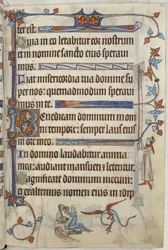 ter est.
Quia in eo letabitur cor nostrum
et in nomine sancto eius speravi
mus.
Fiat misericordia tua domine su
per nos: quemadmodum speravi
mus in te.
Benedicam dominum in om
ni tempore: semper laus eius
in ore meo.
In domino laudabitur anima
mea: audiant mansueti et letentur.
Magnificate dominum mecum:
et exaltemus nomen eius in idip